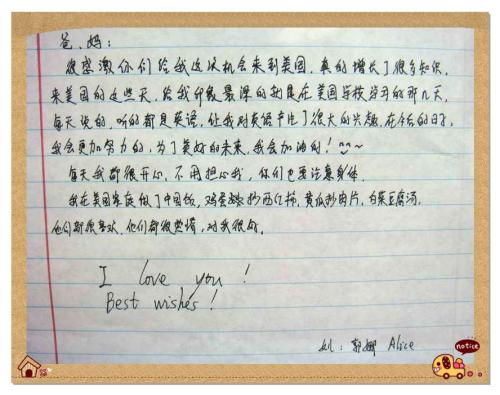 爸、妈：
很感激你们给我这次机会来到美国，真的增长了很多知识，
来美国的这些天，给我印象最深的就是在美国学校学习的那几天，
每天说的，听的都是英语，让我对英语产生了很大的兴趣，在给的日子，
我会更加努力的，为了美好的未来，我会加油的！^^~
每天我都很开心，不用担心我，你们也要注意身体。
我在美国家庭做了中国饭，鸡蛋炒西红柿，黄瓜炒肉片，白菜豆腐汤，
他们都很喜欢，他们都很热情，对我很好。
I love you!
Best wishes!
郭娜 Alice
notice